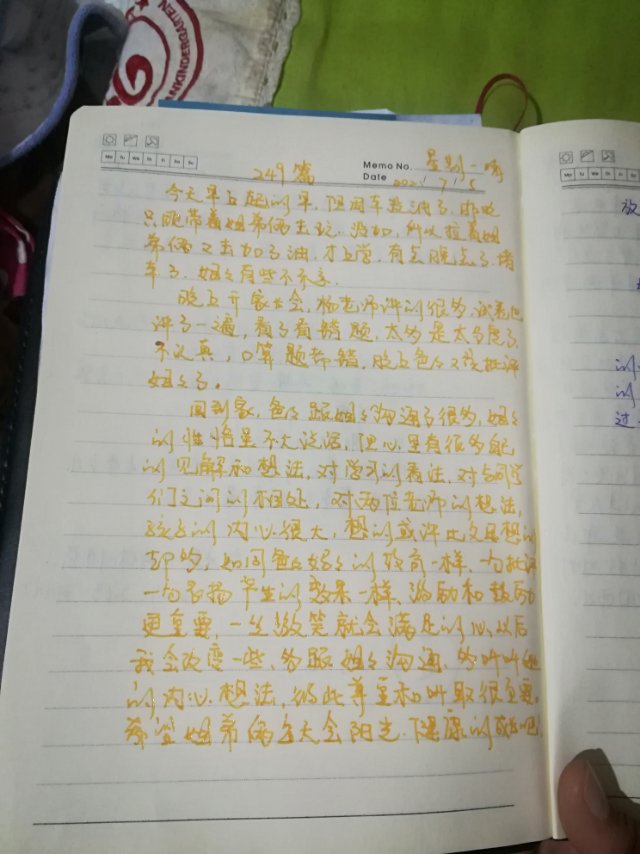 ANKINDERGARTEN
Mo Tu We Th Fr Sa Su
Memo No. 星期一 晴
249篇 Date 2021.7.5
今天早上起的早,因为车没油了,
只能带着姐弟俩去加,所以拉着姐
弟俩又去加了油,才上学,有点晚点了,堵
车了,姐姐有些不
晚上开家长会,杨老师讲的很多,试卷也
讲了一遍,看了看错题,太多是太马虎了,
不认真,口算题都错,晚上爸爸又没批评
姐姐了。
回到家,爸爸跟姐姐沟通了很多,姐姐
的性格是不大活泼,但心里有很多自己
的见解和想法,对学习的看法,对与同学
们之间的相处,对两位老师的想法,
孩子的内心很大,想的或许比父母想的
都多,如同爸爸妈妈的教育一样,一句批评
一句表扬产生的效果一样,激励和鼓励
更重要,一生微笑就会满足的心,以后
我会改变一些,多跟姐姐沟通,多听听她
的内心想法,彼此尊重和听取很重要。
希望姐弟俩每天会阳光、健康的成长吧!